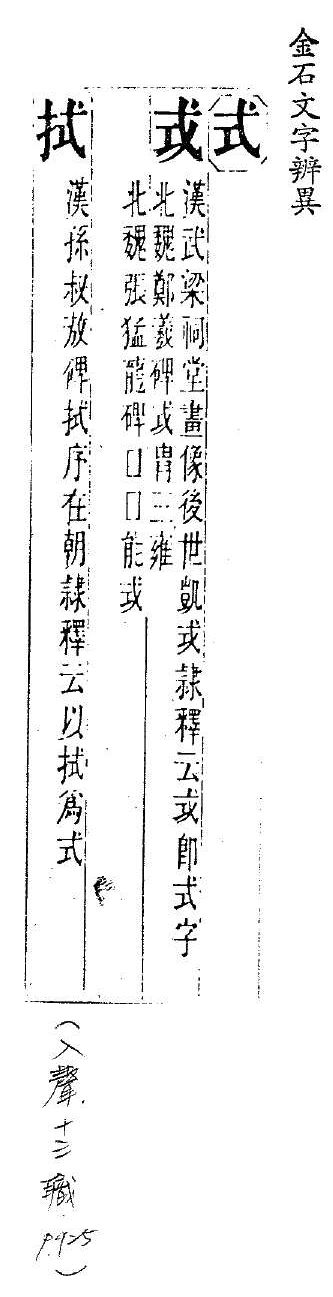 金石文字辨異
式
或
漢武梁祠堂畫像後世凱或隸釋云或即式字
北魏鄭羲碑或胄三雍
北魏張猛龍碑□□能或
拭
漢孫叔敖碑拭序在朝隸釋云以拭爲式
(入聲十三職 P.425)